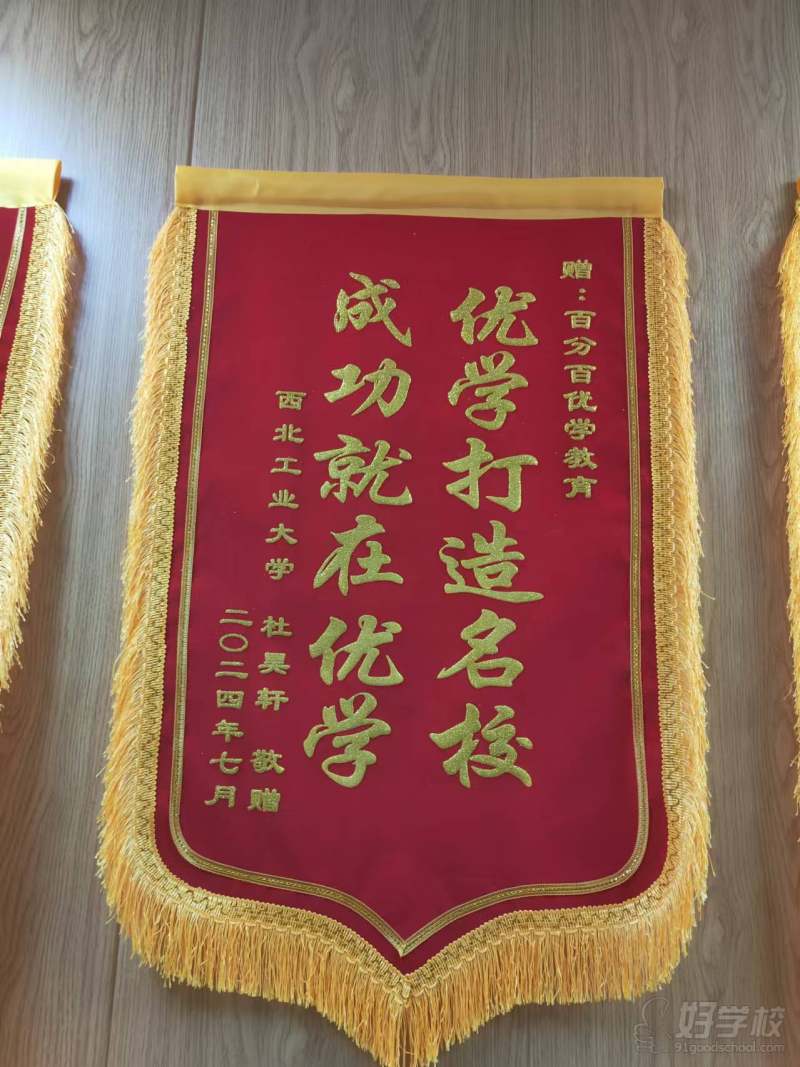 赠：百分百优学教育
优学打造名校
成功就在优学
西北工业大学 杜昊轩 敬赠
二〇二四年七月
好学校
91goodschool.com